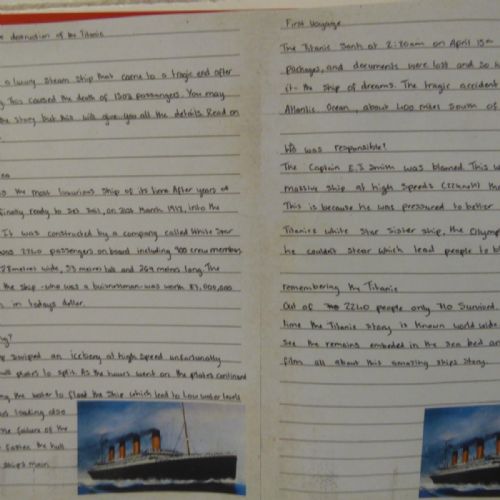 destruction of the Titanic
a luxury steam ship that came to a tragic end after
This caused the death of 1502 passengers. You may
the story but this will give you all the details. Read on
the most luxurious ship of its time. After years of
finally ready to set sail, on 31st March 1912, into the
It was constructed by a company called White Star
2240 passengers on board including 900 crew members
28 metres wide, 53 metres tall and 269 metres long. The
the ship who was a businessman was worth
in todays dollar.
swiped an iceberg at high speed unfortunately
plates to split. As the hours went on the plates continued
the water to flood the ship which lead to low water levels
loading also
the failure of the
faster. the hull
ships main
First Voyage
The Titanic Sank at 2:20am on April 15th
packages, and documents were lost and so
it- the ship of dreams. The tragic accident
Atlantic Ocean, about 400 miles south of
Who was responsible?
The Captain E.J Smith was blamed. This
massive ship at high speeds
This is because he was pressured to better
Titanics white star sister ship, the Olymp
he couldn't steer which lead people to
remembering the Titanic
Out of 2240 people only 710 Survived.
time the Titanic story is known world wide
see the remains embeded in the sea bed an
film all about this amazing ships story.